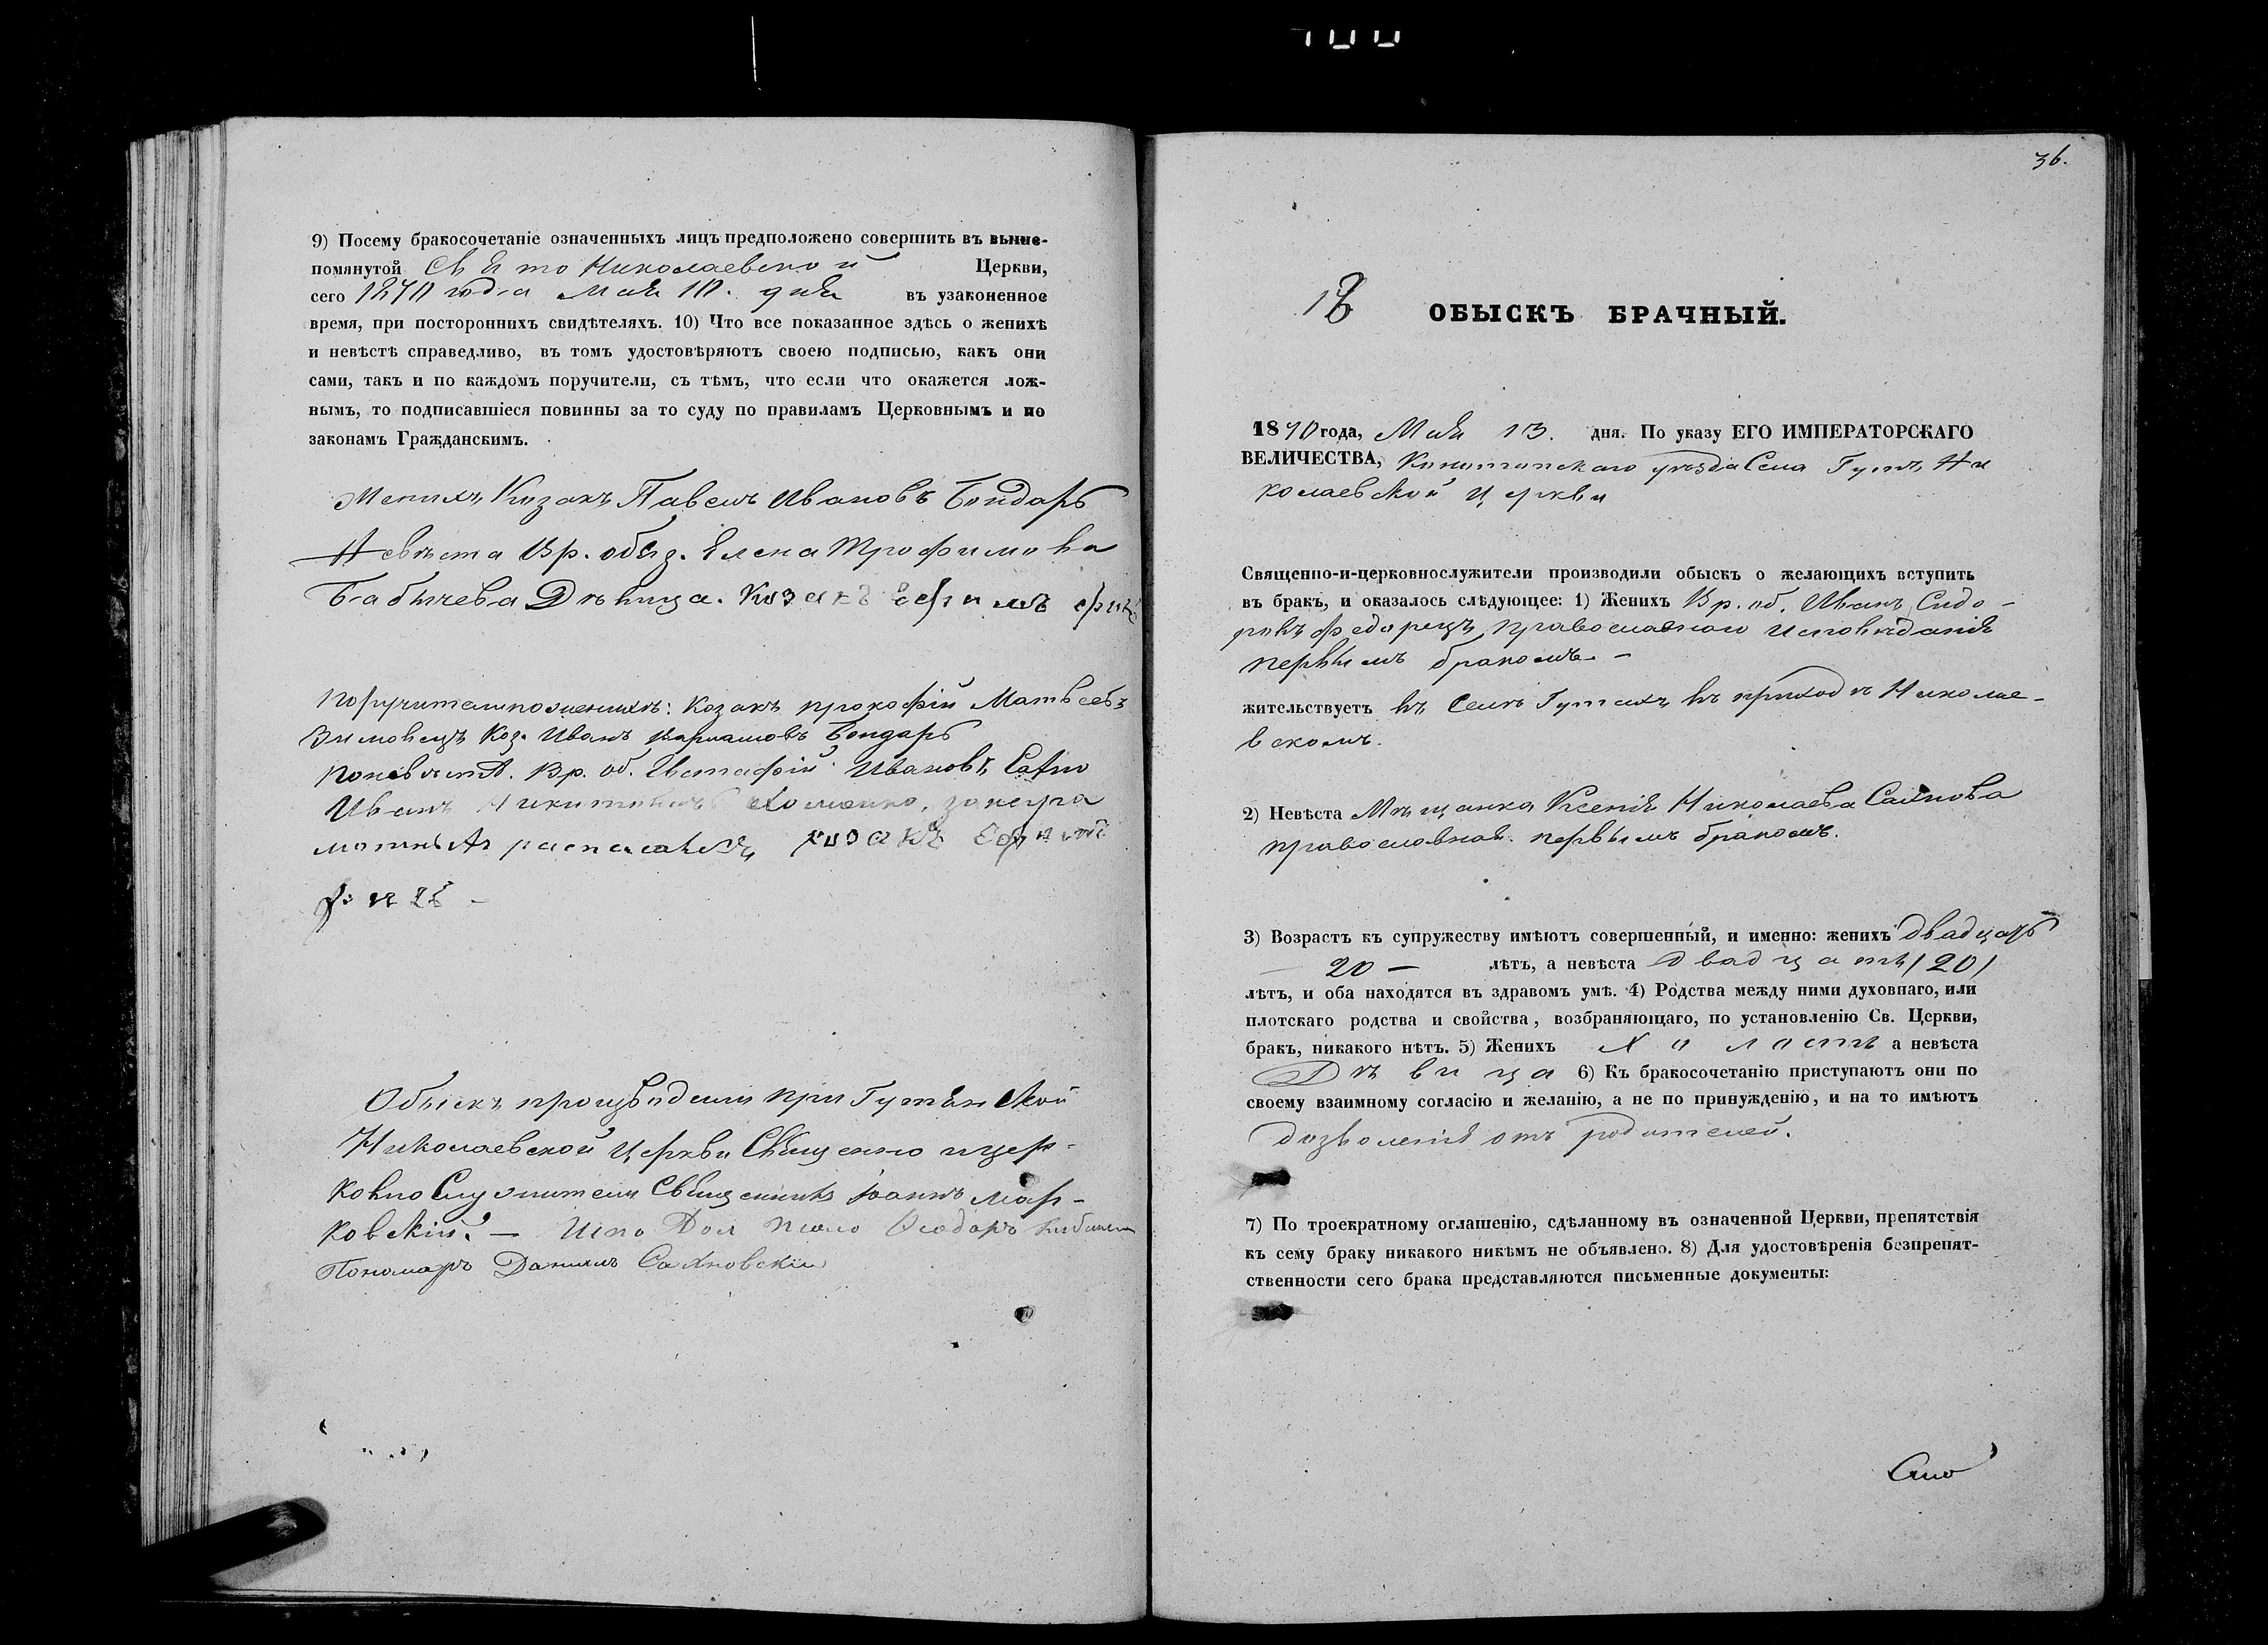 9) Посему бракосочетаніе означенныхъ лицъ предположено совершить въ выше-
помянутой Свято Николаевской Церкви,
сего 1870 года Мая 10. дня въ узаконенное
время, при постороннихъ свидѣтеляхъ. 10) Что все показанное здѣсь о женихѣ
и невѣстѣ справедливо, въ томъ удостовѣряютъ своею подписью, какъ они
сами, такъ и по каждомъ поручители, съ тѣмъ, что если что окажется лож-
нымъ, то подписавшіеся повинны за то суду по правиламъ Церковнымъ и по
законамъ Гражданскимъ.
Женихъ Козакъ Павелъ Ивановъ Бондарь
Невѣста Вр. обяз. Елена Трофимова
Бабичева Дѣвица. Козакъ
Поручители по женихѣ: Козакъ Прокофій Матвѣевъ
Зимовецъ Коз. Иванъ Бондарь
По невѣстѣ. Вр. об. Евстафій Ивановъ
Иванъ Хоменко, за негра
мотныхъ росписался козакъ
Обыскъ производили при Гутянской
Николаевской Церкви Священно и цер-
ковно Служители Священникъ Іоаннъ Мар-
ковскій. —
Пономарь Даніилъ Сахновскій
36.
18 ОБЫСКЪ БРАЧНЫЙ.
1870 года, Мая 13. дня. По указу ЕГО ИМПЕРАТОРСКАГО
ВЕЛИЧЕСТВА, Конотопскаго уѣзда Села Гутъ Ни
колаевской Церкви
Священно-и-церковнослужители производили обыскъ о желающихъ вступить
въ бракъ, и оказалось слѣдующее: 1) Женихъ Вр. об. Иванъ Сидо-
ровъ Федорецъ, православнаго исповѣданія
первымъ бракомъ. —
жительствуетъ въ Селѣ Гутахъ въ приходѣ Николае-
вскомъ.
2) Невѣста Мѣщанка Ксенія Николаева Сахнова
православная. первымъ бракомъ.
3) Возрастъ къ супружеству имѣютъ совершенный, и именно: женихъ двадцать
— 20 — лѣтъ, а невѣста двадцать /20/
лѣтъ, и оба находятся въ здравомъ умѣ. 4) Родства между ними духовнаго, или
плотскаго родства и свойства, возбраняющаго, по установленію Св. Церкви,
бракъ, никакого нѣтъ. 5) Женихъ Холостъ а невѣста
Дѣвица 6) Къ бракосочетанію приступаютъ они по
своему взаимному согласію и желанію, а не по принужденію, и на то имѣютъ
дозволенія отъ родителей.
7) По троекратному оглашенію, сдѣланному въ означенной Церкви, препятствія
къ сему браку никакого никѣмъ не объявлено. 8) Для удостовѣренія безпрепят-
ственности сего брака представляются письменные документы: